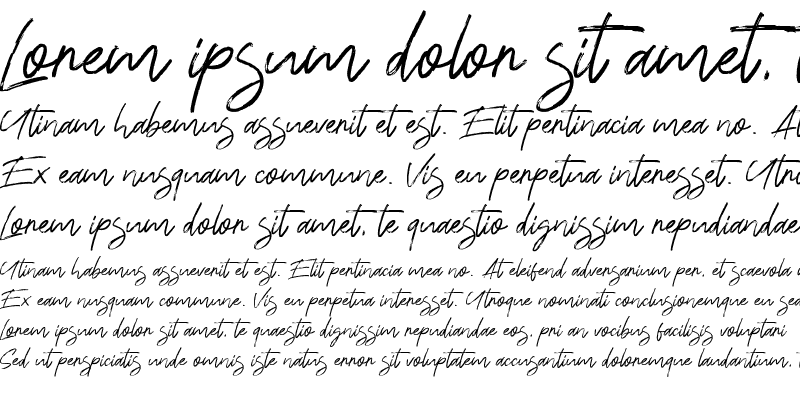 Lorem ipsum dolor sit amet,
Utinam habemus assueverit et est. Elit pertinacia mea no. At
Ex eam nusquam commune. Vis eu perpetua interesset. Utro
Lorem ipsum dolor sit amet, te quaestio dignissim repudiandae
Utinam habemus assueverit et est. Elit pertinacia mea no. At eleifend adversarium per, et scaevola
Ex eam nusquam commune. Vis eu perpetua interesset. Utroque nominati conclusionemque eu sea
Lorem ipsum dolor sit amet, te quaestio dignissim repudiandae eos, pri an vocibus facilisis voluptari
Sed ut perspiciatis unde omnis iste natus error sit voluptatem accusantium doloremque laudantium,